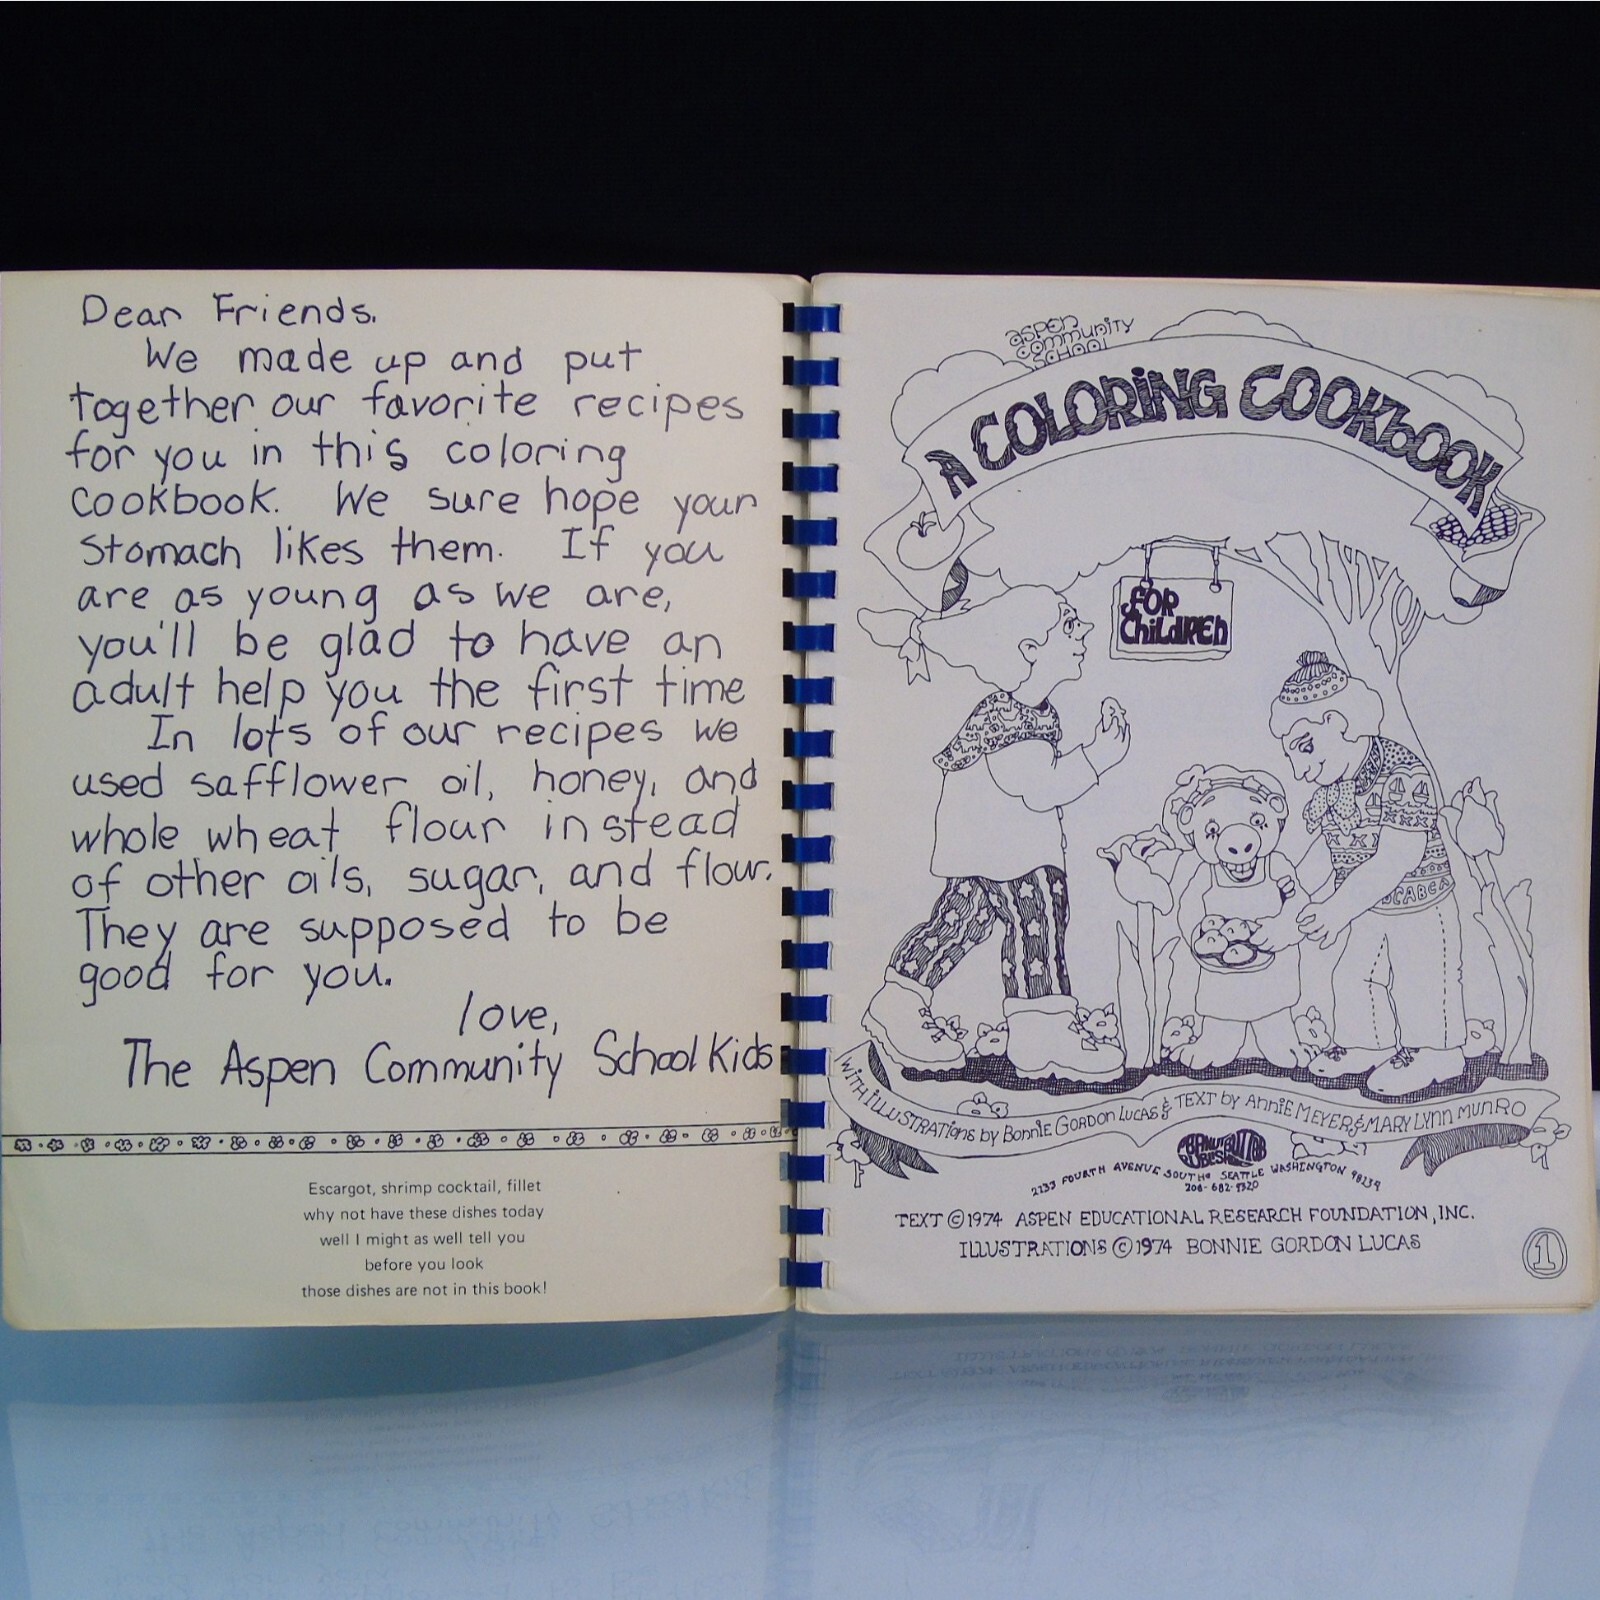 Dear Friends.
We made up and put
together our favorite recipes
for you in this coloring
cookbook. We sure hope your
stomach likes them. If you
are as young as we are,
you'll be glad to have an
adult help you the first time
In lots of our recipes we
used safflower oil, honey, and
whole wheat flour instead
of other oils, sugar, and flour.
They are supposed to be
good for you.
love,
The Aspen Community School Kids
Escargot, shrimp cocktail, fillet
why not have these dishes today
well I might as well tell you
before you look
those dishes are not in this book!
aspen
community
school
A COLORING COOKbOOK
FOR
ChiLdREn
SCABCA
WITH ILLUSTRATIONS by BONNIE GORDON LUCAS & TEXT by ANNIE MEYER & MARY LYNN MUNRO
PEANUT BUTTER
PUBLISHING
2733 FOURTH AVENUE SOUTH SEATTLE WASHINGTON 98134
206-682-9320
TEXT © 1974 ASPEN EDUCATIONAL RESEARCH FOUNDATION, INC.
ILLUSTRATIONS © 1974 BONNIE GORDON LUCAS
1